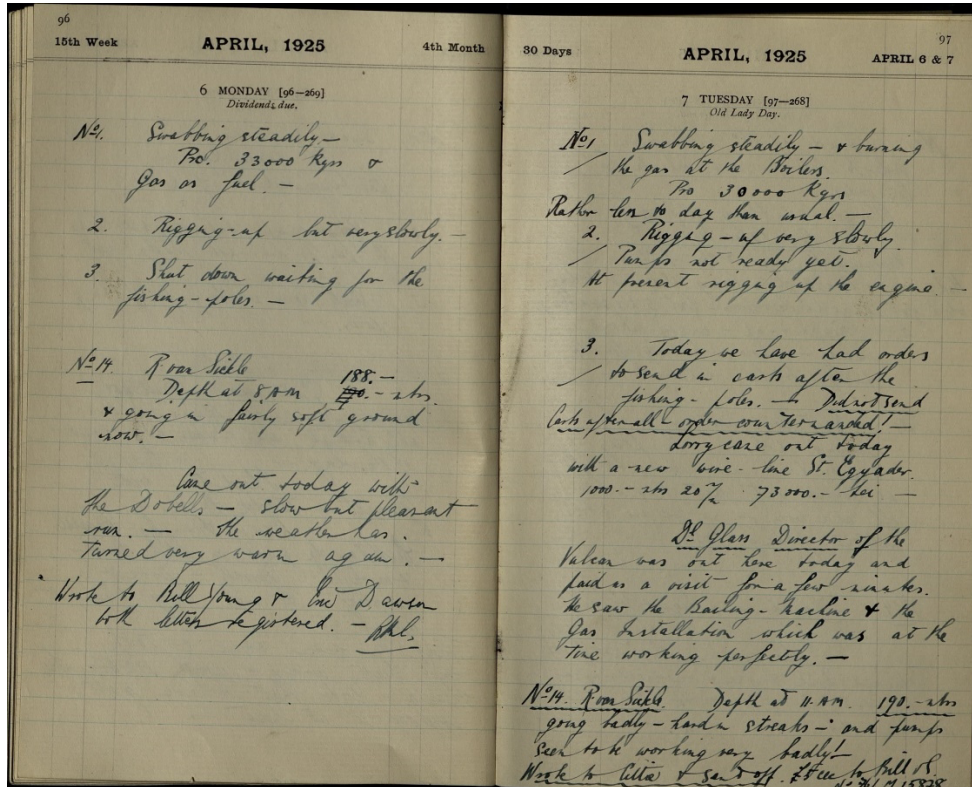 96
15th Week APRIL, 1925 4th Month
6 MONDAY [96—269]
Dividends due.
No 1. Swabbing steadily —
Pro. 33000 Kgrs &
Gas as fuel. —
2. Rigging-up but very slowly. —
3. Shut down waiting for the
fishing-poles. —
No 14. R van Sickle
188.—
Depth at 8. A M mtrs.
& going in fairly soft ground
now. —
Came out today with
the Dobells — slow but pleasant
run. — the weather has
turned very warm again. —
Wrote to Bill Young & Dawson
both letters registered. —
97
30 Days APRIL, 1925 APRIL 6 & 7
7 TUESDAY [97—268]
Old Lady Day.
No 1 Swabbing steadily — & burning
the gas at the Boilers.
Pro 30000 Kgrs
Rather less to day than usual. —
2. Rigging-up very slowly.
Pumps not ready yet.
At present rigging up the engine. —
3. Today we have had orders
to send in carts after the
fishing-poles. — Did not send
Carts after all — order countermanded! —
Lorry came out today
with a new wire-line St. Egyader.
1000.— mtrs 20 m/m 73000.— Lei —
Dr Glass Director of the
Vulcan was out here today and
paid us a visit for a few minutes.
He saw the Bailing-Machine & the
Gas Installation which was at the
time working perfectly. —
No 14. R van Sickle. Depth at 11. A M. 190.— mtrs
going badly — hard in streaks — and pumps
seem to be working very badly!
Wrote to & send off to Bill